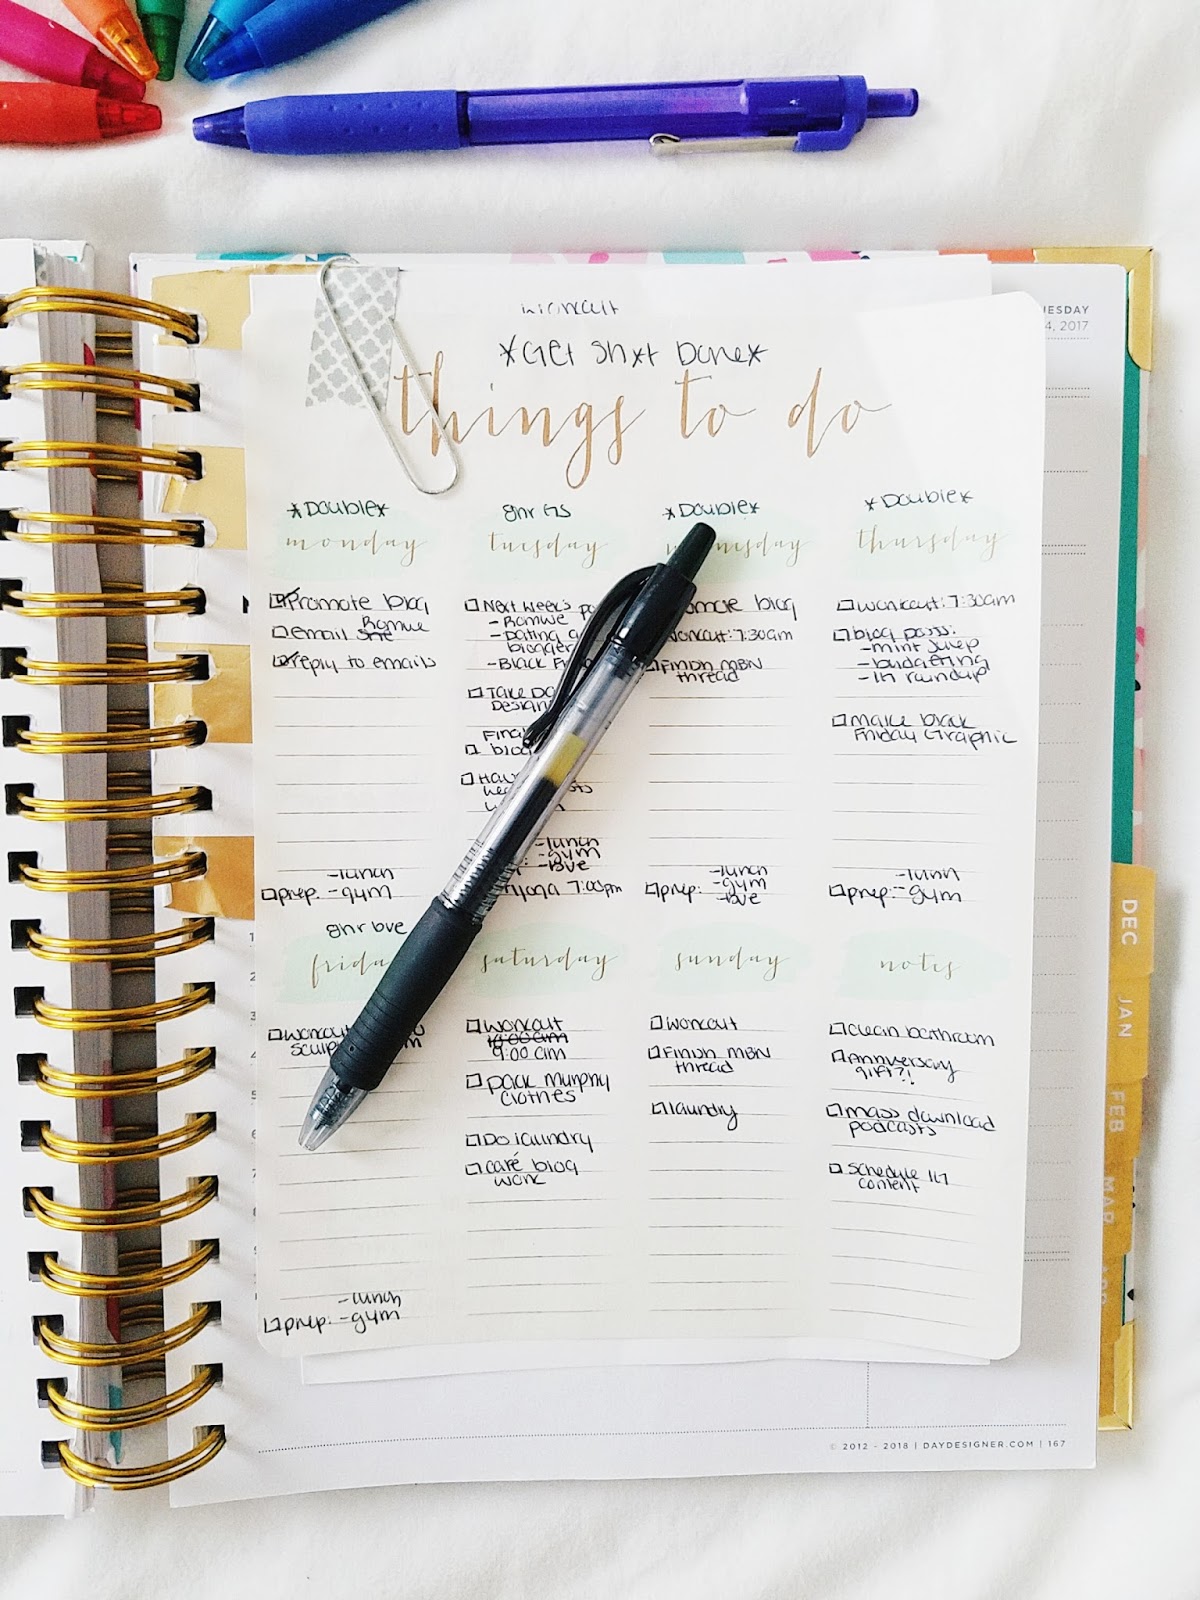 UESDAY
4, 2017
workout
*Get sh*t Done*
things to do
*Double*
monday
Promote blog
email Romwe
reply to emails
-lunch
prep: -gym
8hr
tuesday
Next week's
-Romwe
-Dating a
blogger
-Black
Take
Design
blog
-lunch
-gym
-bve
yoga 7:00pm
*Double*
blog
workout: 7:30am
Finish MBN
thread
-lunch
prep: -gym
-bve
*Double*
thursday
workout: 7:30am
blog posts:
-mint julep
-budgeting
-in roundup
make black
Friday Graphic
-lunch
prep: -gym
8hr bve
frida
workout
-lunch
prep: -gym
saturday
workout
10:00am
9:00am
pack murphy
clothes
Do laundry
café blog
work
sunday
workout
Finish MBN
thread
laundry
notes
clean bathroom
Anniversary
gift?!
mass download
podcasts
Schedule
content
DEC
JAN
FEB
MAR
© 2012 - 2018 | DAYDESIGNER.COM | 167